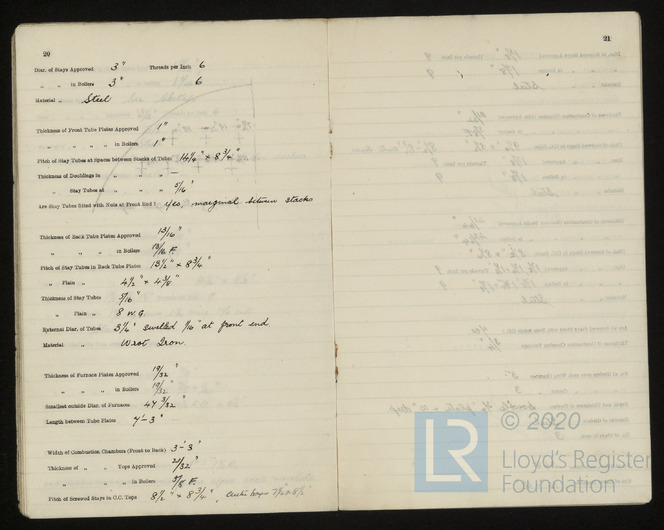 20
Diar. of Stays Approved 3" Threads per Inch 6
„ „ in Boilers 3" 6
Material „ Steel
Thickness of Front Tube Plates Approved 1"
„ „ „ „ in Boilers 1"
Pitch of Stay Tubes at Spaces between Stacks of Tubes 14 1/4" × 8 3/4"
Thickness of Doublings in „ „ „ —
„ Stay Tubes at „ „ 5/16"
Are Stay Tubes fitted with Nuts at Front End? Yes, marginal between stacks
Thickness of Back Tube Plates Approved 13/16"
„ „ „ in Boilers 13/16 F.
Pitch of Stay Tubes in Back Tube Plates 13 1/2" × 8 3/4"
„ Plain „ 4 1/2" × 4 3/8"
Thickness of Stay Tubes 5/16"
„ Plain „ 8 W.G.
External Diar. of Tubes 3 1/4" swelled 1/16" at front end.
Material „ Wrot Iron.
Thickness of Furnace Plates Approved 19/32"
„ „ „ in Boilers 19/32"
Smallest outside Diar. of Furnaces 47 3/32"
Length between Tube Plates 7'-3"
Width of Combustion Chambers (Front to Back) 3'-3"
Thickness of „ „ Tops Approved 21/32"
„ „ „ „ in Boilers 5/8 F.
Pitch of Screwed Stays in C.C. Tops 8 1/2" × 8 3/4",
21
© 2020
LR
Lloyd's Register
Foundation